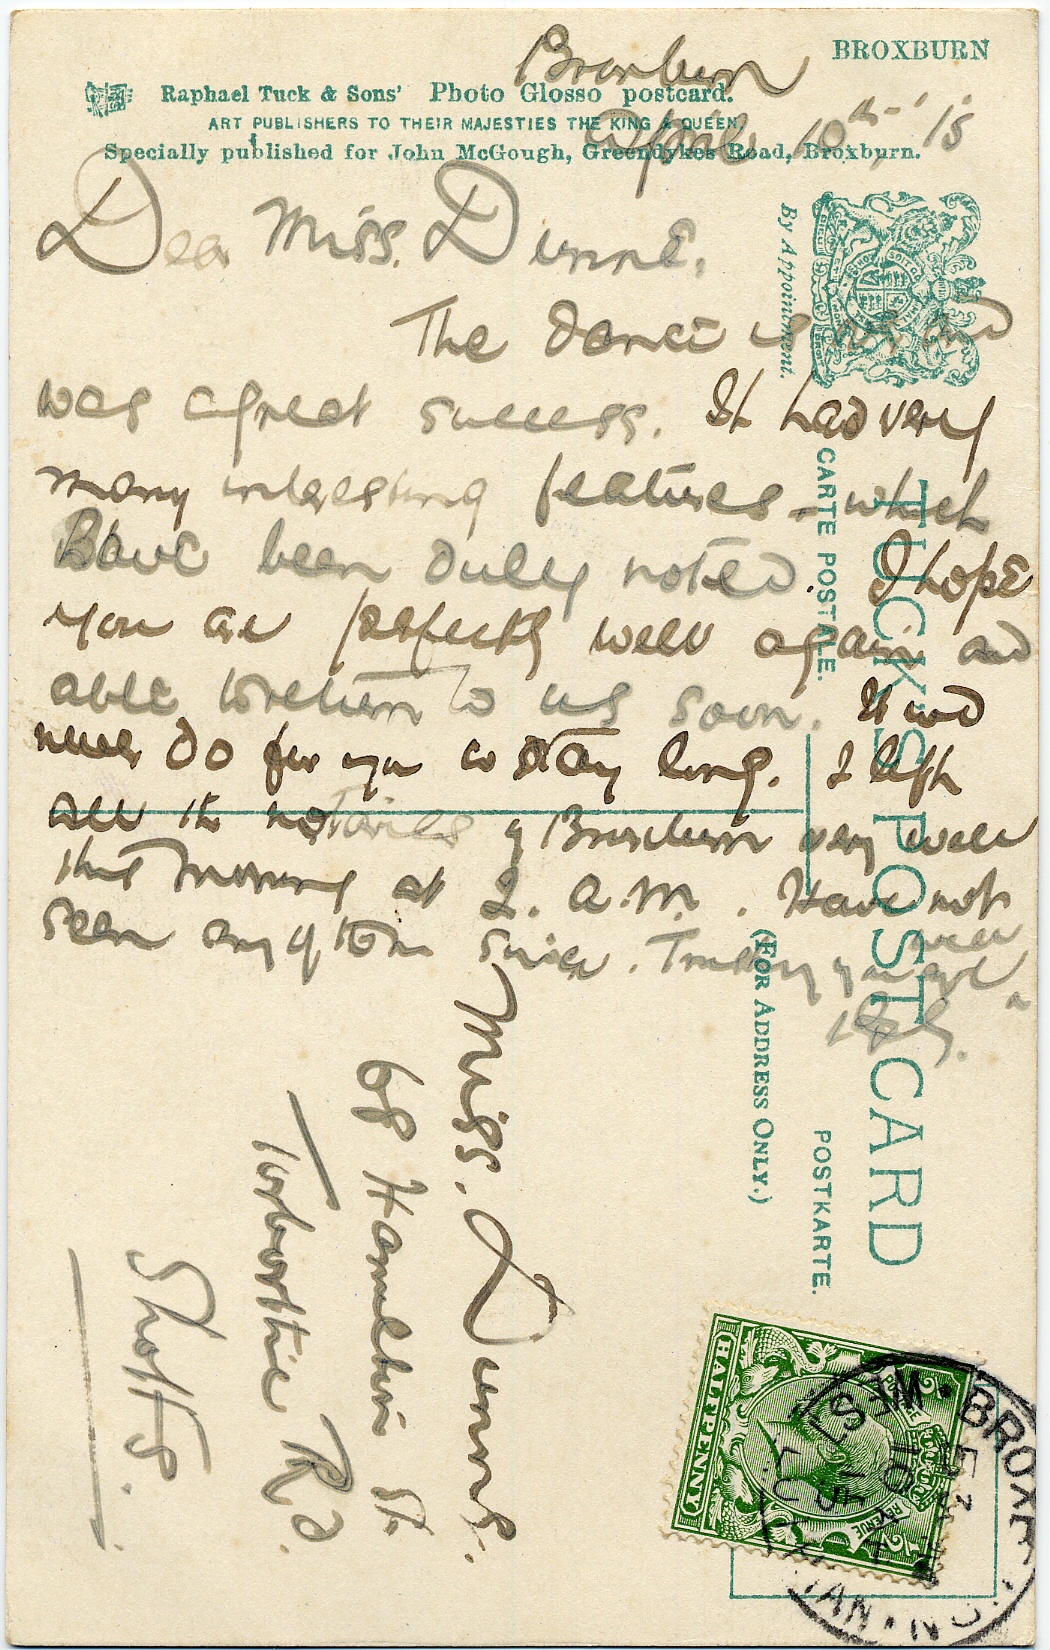 BROXBURN
Broxburn
Raphael Tuck & Sons' Photo Glosso postcard.
ART PUBLISHERS TO THEIR MAJESTIES THE KING & QUEEN
April 10th, '15
Specially published for John McGough, Greendykes Road, Broxburn.
Dear Miss. Dunne.
By Appointment.
The Dance is and
was a great success. It had very
many interesting features - which
Have been duly noted. I hope
you are perfectly well again and
able to return to us soon. It wd
never do for you to stay long. I left
all the notaries of Broxburn very well
this morning at 2. a.m. Have not
seen any of them since. Trusting you are well
TUCK'S POST CARD
CARTE POSTALE.
POSTKARTE.
(FOR ADDRESS ONLY.)
Miss. Dunne.
68 Hamilton St.
Torbothie Rd.
Shotts.
HALFPENNY
REVENUE
1/2
BROXBURN
WEST